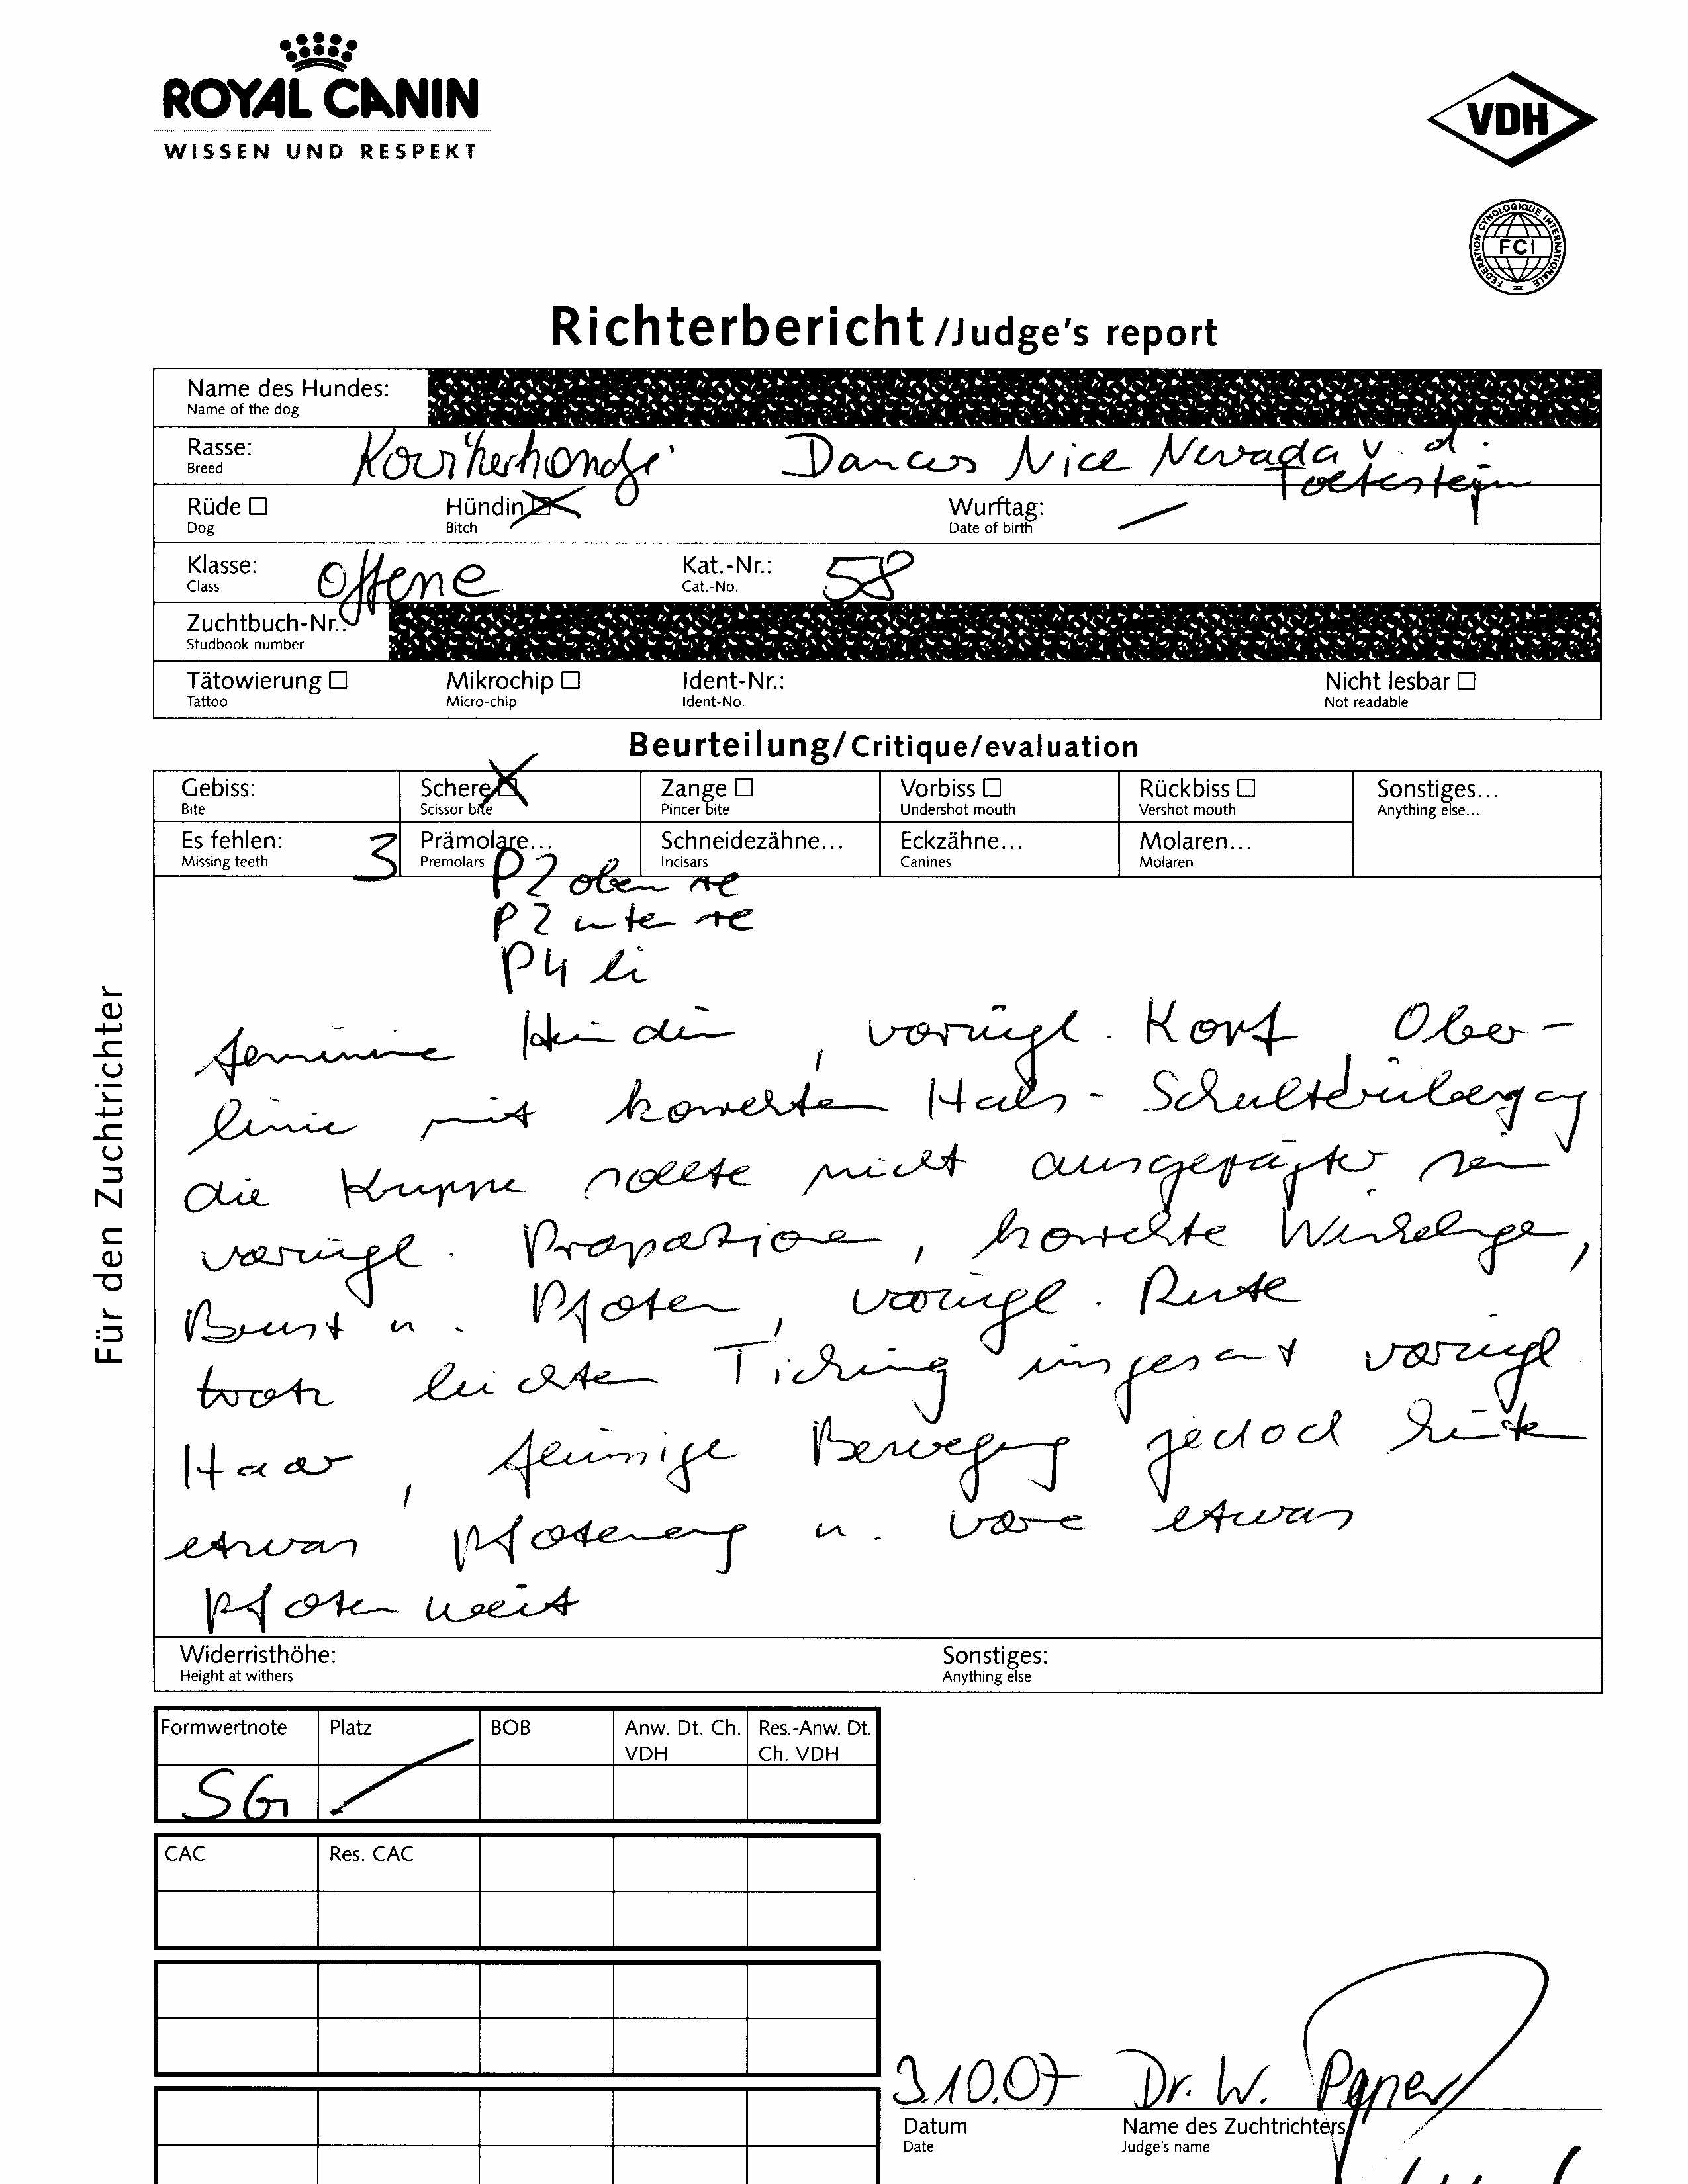 ROYAL CANIN
WISSEN UND RESPEKT
VDH
FEDERATION CYNOLOGIQUE INTERNATIONALE
FCI
Richterbericht/Judge's report
Name des Hundes:
Name of the dog
Rasse: Kooikerhondje Dances Nice Nevada v. d.
Breed
Rüde Hündin Wurftag: —
Dog Bitch Date of birth
Klasse: Offene Kat.-Nr.: 58
Class Cat.-No.
Zuchtbuch-Nr.:
Studbook number
Tätowierung Mikrochip Ident-Nr.: Nicht lesbar
Tattoo Micro-chip Ident-No. Not readable
Beurteilung/Critique/evaluation
Gebiss: Schere Zange Vorbiss Rückbiss Sonstiges...
Bite Scissor bite Pincer bite Undershot mouth Vershot mouth Anything else...
Es fehlen: 3 Prämolare... Schneidezähne... Eckzähne... Molaren...
Missing teeth Premolars Incisars Canines Molaren
P2 oben re
P2 unten re
P4 li
feminine Hündin, vorzügl. Kopf, Ober-
linie mit korrekten Hals-Schulterübergang
die Kruppe sollte nicht ausgeprägter sein
vorzügl. Proportionen, korrekte Winkelungen,
Brust u. Pfoten, vorzügl. Rute
trotz leichten Ticking insgesamt vorzügl.
Haar, flüssige Bewegung jedoch hinten
etwas pfoteneng u. vorne etwas
pfotenweit
Für den Zuchtrichter
Widerristhöhe: Sonstiges:
Height at withers Anything else
Formwertnote Platz BOB Anw. Dt. Ch. VDH Res.-Anw. Dt. Ch. VDH
SG
CAC Res. CAC
3.10.07 Dr. W.
Datum Name des Zuchtrichters
Date Judge's name